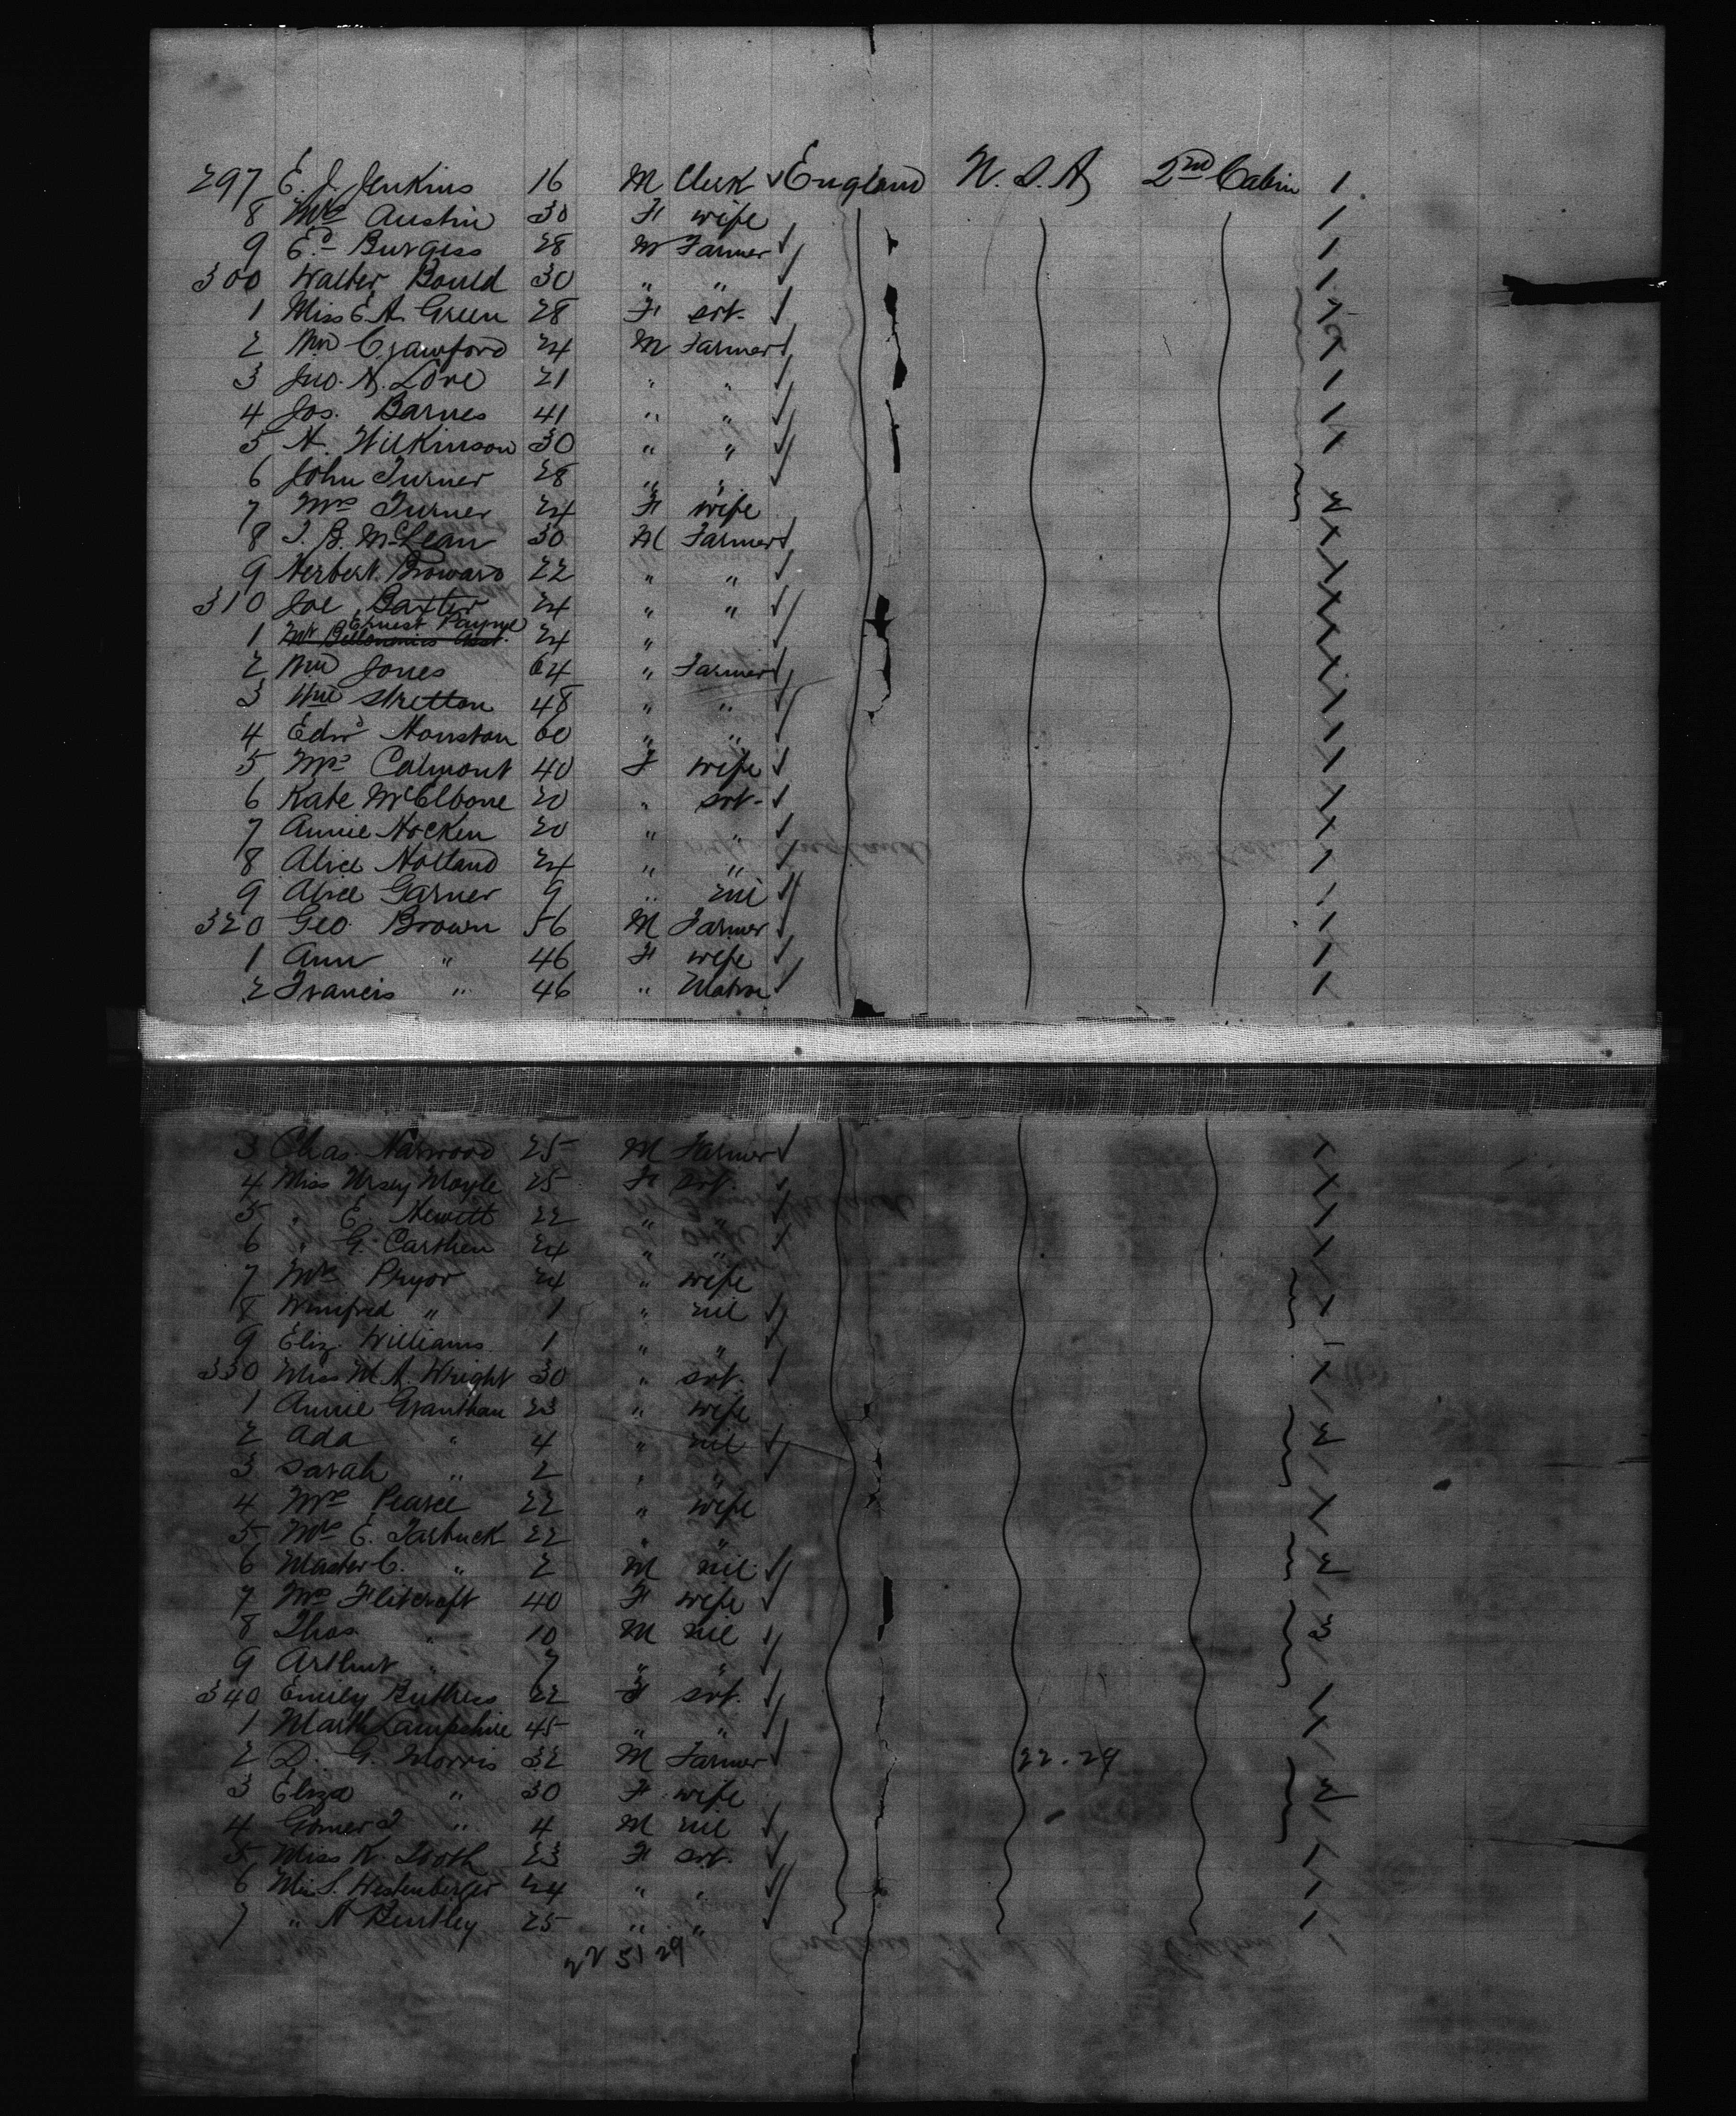 297 E. J. Jenkins 16 M Clerk ✓ England U.S.A 2nd Cabin 1
8 Mrs Austin 30 F wife 1
9 Ed Burgess 28 M Farmer 1
300 Walter Bould 30 " " 1
1 Miss E A Green 28 F srt. 1
2 Wm Crawford 24 M Farmer 1
3 Jno. H. Love 21 " " 1
4 Jos. Barnes 41 " " 1
5 A. Wilkinson 30 " " 1
6 John Turner 28 " "
7 Mrs Turner 24 F wife 2
8 J. B. McLean 30 M Farmer 1
9 Herbert Broward 22 " " 1
310 Joe Baxter 24 " " 1
1 Ernest Payne 24 " 1
2 Wm Jones 64 " Farmer 1
3 Wm Stretton 48 " " 1
4 Edwd Houston 60 " " 1
5 Mrs Calmont 40 F wife 1
6 Kate McElbone 20 " srt. 1
7 Annie Hocken 20 " " 1
8 Alice Holland 24 " " 1
9 Alice Garner 9 " nil 1
320 Geo. Brown 56 M Farmer 1
1 Ann " 46 F wife 1
2 Francis " 46 " 1
3 Chas. Harwood 25 M Farmer 1
4 Miss Ursey Moyle 25 F srt. 1
5 " E. Hewett 22 " " 1
6 " G. Carthew 24 " " 1
7 Mrs Pryor 24 " wife
8 Winifred " 1 " nil 1
9 Eliz. Williams 1 " "
330 Miss M. A. Wright 30 " srt. 1
1 Annie Granthan 23 " wife
2 Ada " 4 " nil 2
3 Sarah " 2 " "
4 Mrs Pearce 22 " wife 1
5 Mrs E. Tarbuck 22 " "
6 Master C. " 2 M nil 2
7 Mrs Flitcraft 40 F wife
8 Thos. " 10 M nil 3
9 Arthur " 7 " "
340 Emily Buthers 22 F srt. 1
1 Marth Lampshire 45 " " 1
2 D. G. Morris 32 M Farmer 22-29
3 Eliza " 30 F wife 2
4 Gomer J " 4 M nil
5 Miss K. Tooth 23 F srt. 1
6 Mis S. Westenberger 24 " " 1
7 " A Bentley 25 " " 1
22 51 29